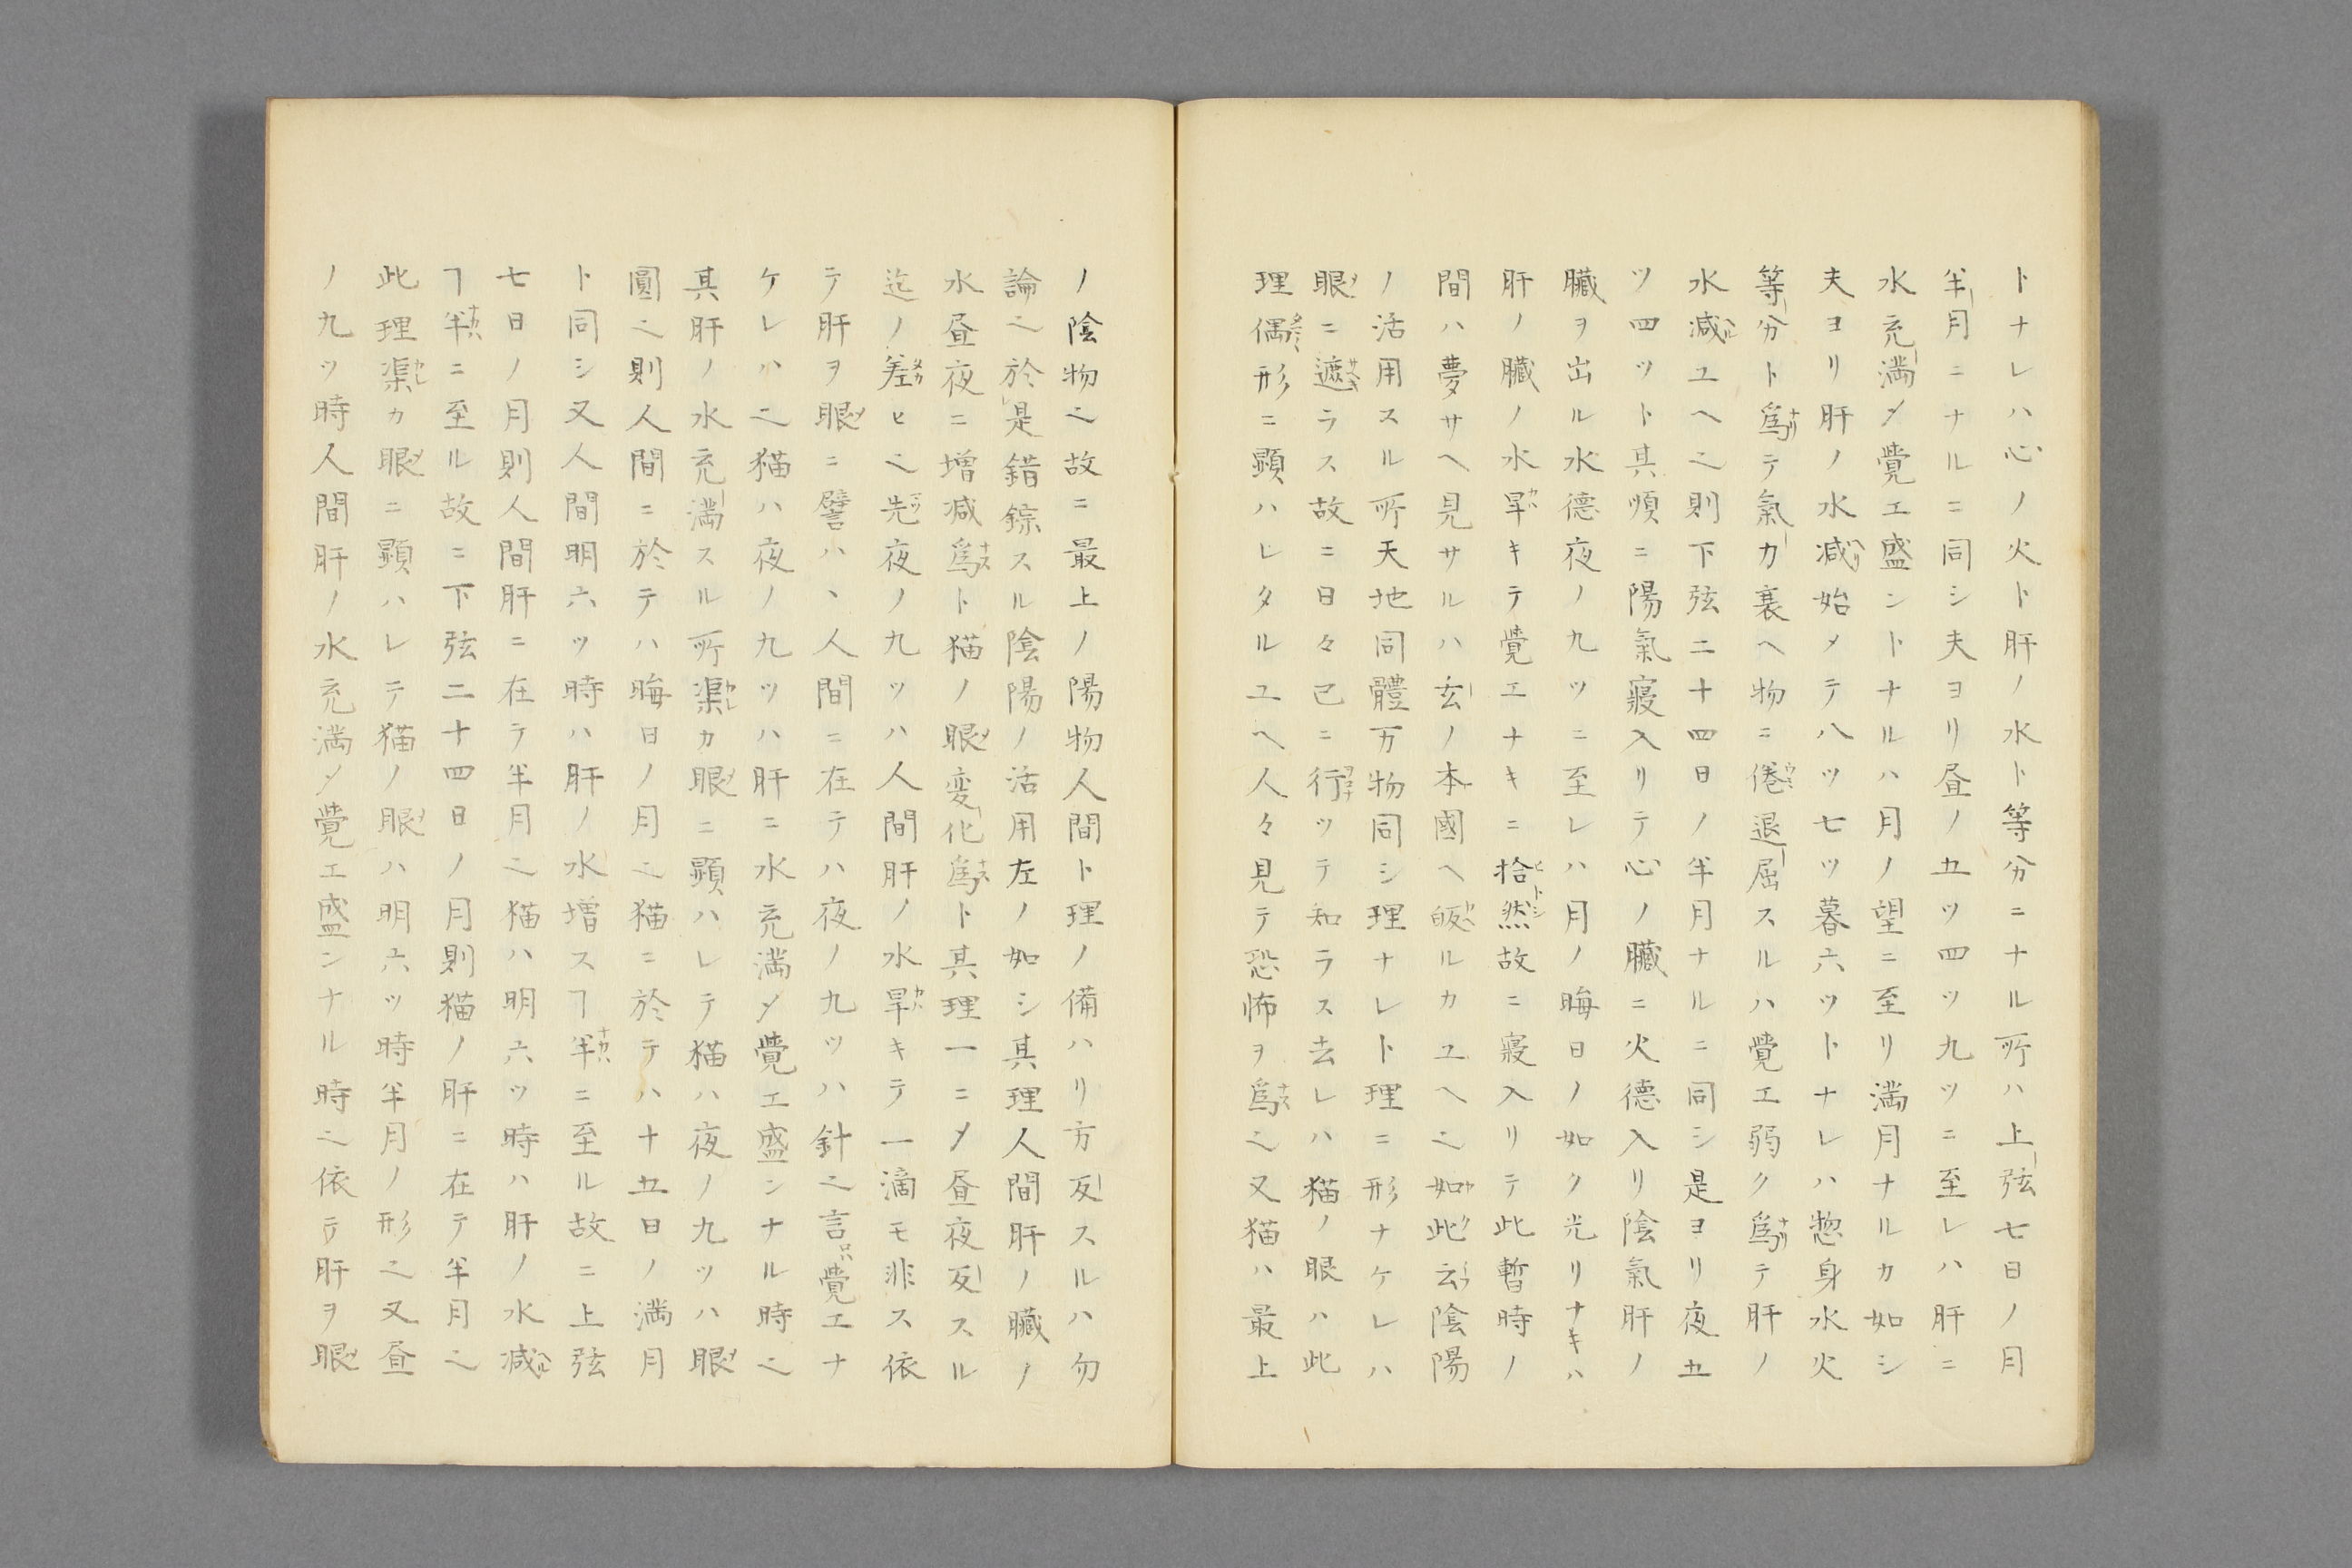 トナレハ心ノ火ト肝ノ水ト等分ニナル所ハ上弦七日ノ月
半月ニナルニ同シ夫ヨリ昼ノ五ツ四ツ九ツニ至レハ肝ニ
水充満〆覺エ盛ントナルハ月ノ望ニ至リ満月ナルカ如シ
夫ヨリ肝ノ水減始メテ八ツ七ツ暮六ツトナレハ惣身水火
等分ト爲テ氣カ衰ヘ物ニ倦退屈スルハ覺エ弱ク爲テ肝ノ
水減ユヘ之則下弦二十四日ノ半月ナルニ同シ是ヨリ夜五
ツ四ツト其順ニ陽氣寢入リテ心ノ臓ニ火德入リ陰氣肝ノ
臓ヲ出ル水德夜ノ九ツニ至レハ月ノ晦日ノ如ク光リナキハ
肝ノ臓ノ水旱キテ覺エナキニ拾然故ニ寢入リテ此暫時ノ
間ハ夢サヘ見サルハ玄ノ本國ヘ皈ルカユヘ之如此云陰陽
ノ活用スル所天地同體万物同シ理ナレト理ニ形ナケレハ
眼ニ遮ラス故ニ日々己ニ行ツテ知ラス去レハ猫ノ眼ハ此
理偶形ニ顕ハレタルユヘ人々見テ恐怖ヲ爲之又猫ハ最上
ノ陰物之故ニ最上ノ陽物人間ト理ノ備ハリ方反スルハ勿
論之於是錯綜スル陰陽ノ活用左ノ如シ其理人間肝ノ臓ノ
水昼夜ニ増減爲ト猫ノ眼変化爲ト其理一ニ〆昼夜反スル
迄ノ差ヒ之先夜ノ九ツハ人間肝ノ水旱キテ一滴モ非ス依
テ肝ヲ眼ニ譬ハヽ人間ニ在テハ夜ノ九ツハ針之言覺エナ
ケレハ之猫ハ夜ノ九ツハ肝ニ水充満〆覺エ盛ンナル時之
其肝ノ水充満スル所渠カ眼ニ顕ハレテ猫ハ夜ノ九ツハ眼
圓之則人間ニ於テハ晦日ノ月之猫ニ於テハ十五日ノ満月
ト同シ又人間明六ツ時ハ肝ノ水増スヿ半ニ至ル故ニ上弦
七日ノ月則人間肝ニ在テ半月之猫ハ明六ツ時ハ肝ノ水減
ヿ半ニ至ル故ニ下弦二十四日ノ月則猫ノ肝ニ在テ半月之
此理渠カ眼ニ顕ハレテ猫ノ眼ハ明六ツ時半月ノ形之又昼
ノ九ツ時人間肝ノ水充満〆覺エ盛ンナル時之依テ肝ヲ眼